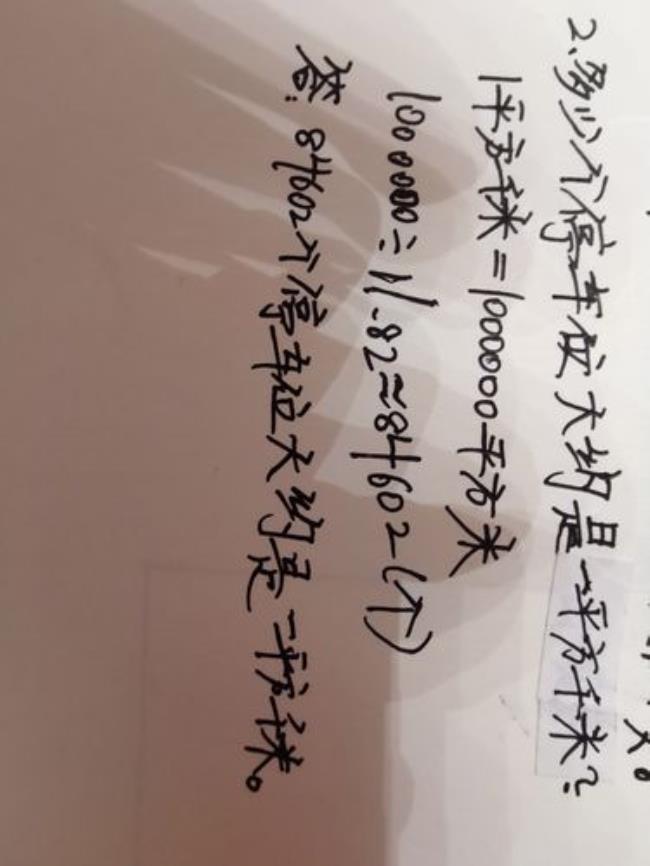 2、多少个停车位大约是一平方千米?
1平方千米=1000000平方米
1000000÷11.82≈84602(个)
答:84602个停车位大约是一平方千米。